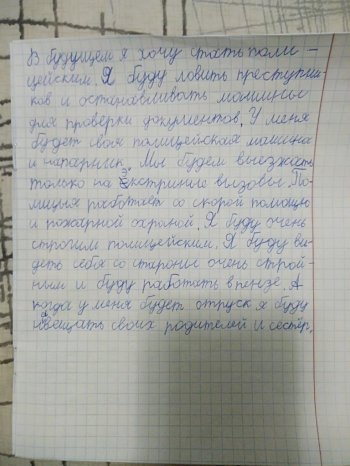 В будущем я хочу стать поли-
цейским. Я буду ловить преступни-
ков и останавливать машины
для проверки документов. У меня
будет своя полицейская машина
и напарник. Мы будем выезжать
только на Экстриные вызовы. По-
лиция работает со скорой помощью
и пожарной охраной. Я буду очень
строгим полицейским. Я буду ви-
деть себя со стороны очень строй-
ным и буду работать в пензе. А
когда у меня будет отпуск я буду
навещать своих родителей и сестёр.